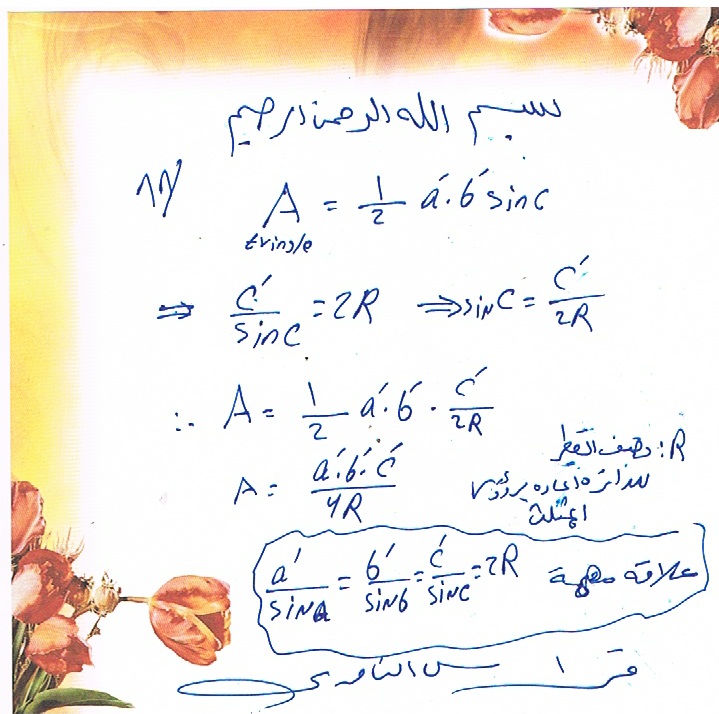 بسم الله الرحمن الرحيم
A = 1/2 a'. b' sin c
tringle
⇒ c'/sin c = 2R ⇒ sin C = c'/2R
∴ A = 1/2 a'. b' . c'/2R
A = a'. b'. c'/4R
R: نصف القطر
للدائرة المارة برؤوس
المثلث
a'/sin a = b'/sin b = c'/sin c = 2R علاقة مهمة